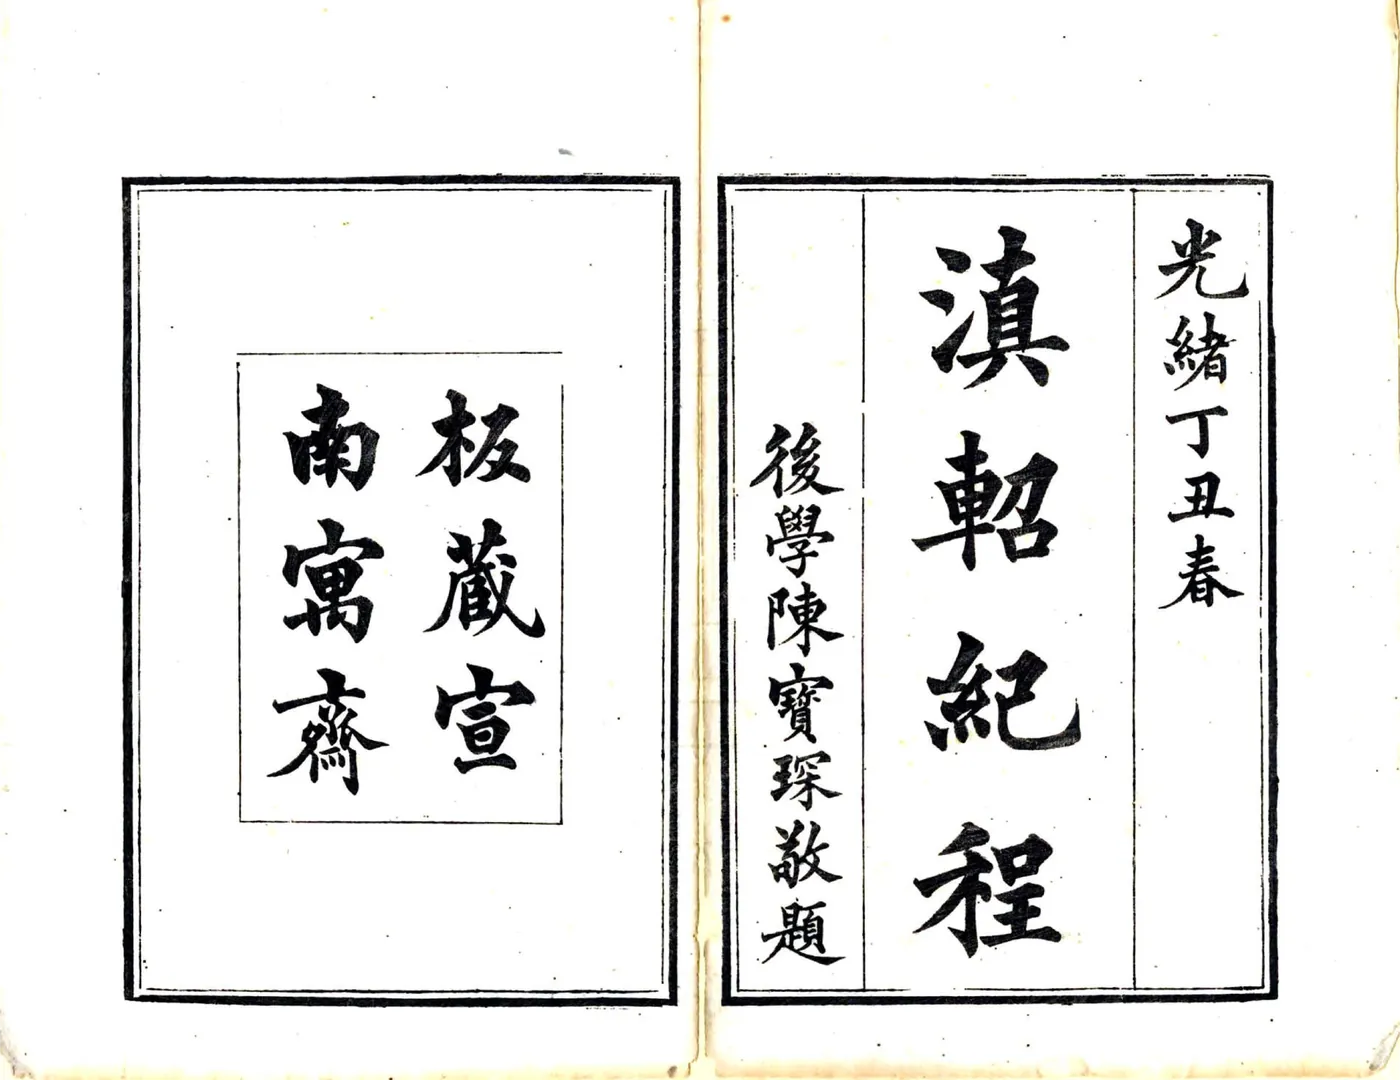 光緒丁丑春
滇軺紀程
後學陳寶琛敬題
板藏宣
南寓齋